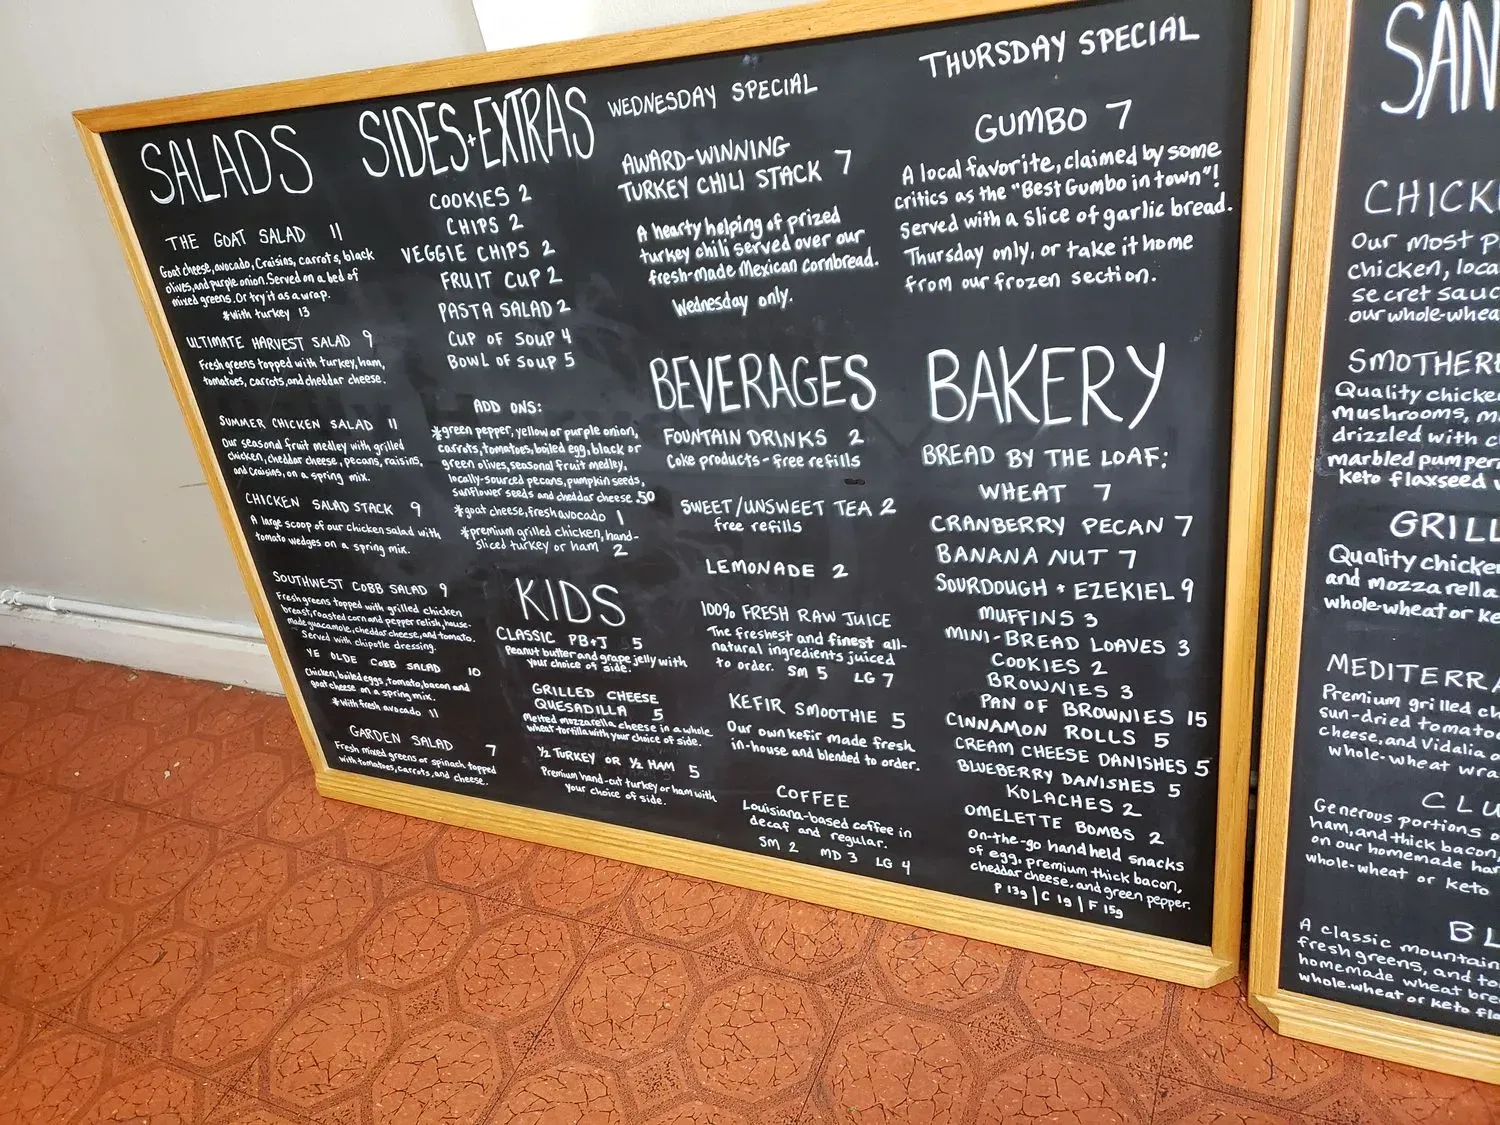 SALADS
THE GOAT SALAD 11
Goat cheese, avocado, Craisins, carrots, black
olives, and purple onion. Served on a bed of
mixed greens. Or try it as a wrap.
*with turkey 13
ULTIMATE HARVEST SALAD 9
Fresh greens topped with turkey, ham,
tomatoes, carrots, and cheddar cheese.
SUMMER CHICKEN SALAD 11
Our seasonal fruit medley with grilled
chicken, cheddar cheese, pecans, raisins,
and Craisins, on a spring mix.
CHICKEN SALAD STACK 9
A large scoop of our chicken salad with
tomato wedges on a spring mix.
SOUTHWEST COBB SALAD 9
Fresh greens topped with grilled chicken
breast, roasted corn and pepper relish, house-
made guacamole, cheddar cheese, and tomato.
Served with chipotle dressing.
YE OLDE COBB SALAD 10
Chicken, boiled eggs, tomato, bacon and
goat cheese on a spring mix.
*with fresh avocado 11
GARDEN SALAD 7
Fresh mixed greens or spinach topped
with tomatoes, carrots, and cheese.
SIDES+EXTRAS
COOKIES 2
CHIPS 2
VEGGIE CHIPS 2
FRUIT CUP 2
PASTA SALAD 2
CUP OF SOUP 4
BOWL OF SOUP 5
ADD ONS:
*green pepper, yellow or purple onion,
carrots, tomatoes, boiled egg, black or
green olives, seasonal fruit medley,
locally-sourced pecans, pumpkin seeds,
sunflower seeds and cheddar cheese .50
*goat cheese, fresh avocado 1
*premium grilled chicken, hand-
sliced turkey or ham 2
KIDS
CLASSIC PB+J 5
Peanut butter and grape jelly with
your choice of side.
GRILLED CHEESE
QUESADILLA 5
Melted mozzarella cheese in a whole
wheat tortilla with your choice of side.
½ TURKEY OR ½ HAM 5
Premium hand-cut turkey or ham with
your choice of side.
WEDNESDAY SPECIAL
AWARD-WINNING
TURKEY CHILI STACK 7
A hearty helping of prized
turkey chili served over our
fresh-made Mexican cornbread.
Wednesday only.
BEVERAGES
FOUNTAIN DRINKS 2
Coke products - free refills
SWEET/UNSWEET TEA 2
free refills
LEMONADE 2
100% FRESH RAW JUICE
The freshest and finest all-
natural ingredients juiced
to order. SM 5 LG 7
KEFIR SMOOTHIE 5
Our own kefir made fresh
in-house and blended to order.
COFFEE
Louisiana-based coffee in
decaf and regular.
SM 2 MD 3 LG 4
THURSDAY SPECIAL
GUMBO 7
A local favorite, claimed by some
critics as the "Best Gumbo in town"!
Served with a slice of garlic bread.
Thursday only, or take it home
from our frozen section.
BAKERY
BREAD BY THE LOAF:
WHEAT 7
CRANBERRY PECAN 7
BANANA NUT 7
SOURDOUGH + EZEKIEL 9
MUFFINS 3
MINI-BREAD LOAVES 3
COOKIES 2
BROWNIES 3
PAN OF BROWNIES 15
CINNAMON ROLLS 5
CREAM CHEESE DANISHES 5
BLUEBERRY DANISHES 5
KOLACHES 2
OMELETTE BOMBS 2
On-the-go handheld snacks
of egg, premium thick bacon,
cheddar cheese, and green pepper.
P 13g | C 1g | F 15g
SAN
CHICK
Our most p
chicken, loca
secret sauc
our whole-whea
SMOTHER
Quality chicke
mushrooms, m
drizzled with c
marbled pumper
Keto flaxseed
GRILL
Quality chicke
and mozzarella
whole-wheat or ke
MEDITERRA
Premium grilled ch
sun-dried tomato
cheese, and Vidalia o
whole-wheat wra
CLU
Generous portions o
ham, and thick bacon
on our homemade ha
whole-wheat or keto
BL
A classic mountain
fresh greens, and to
homemade wheat bre
whole-wheat or keto fla